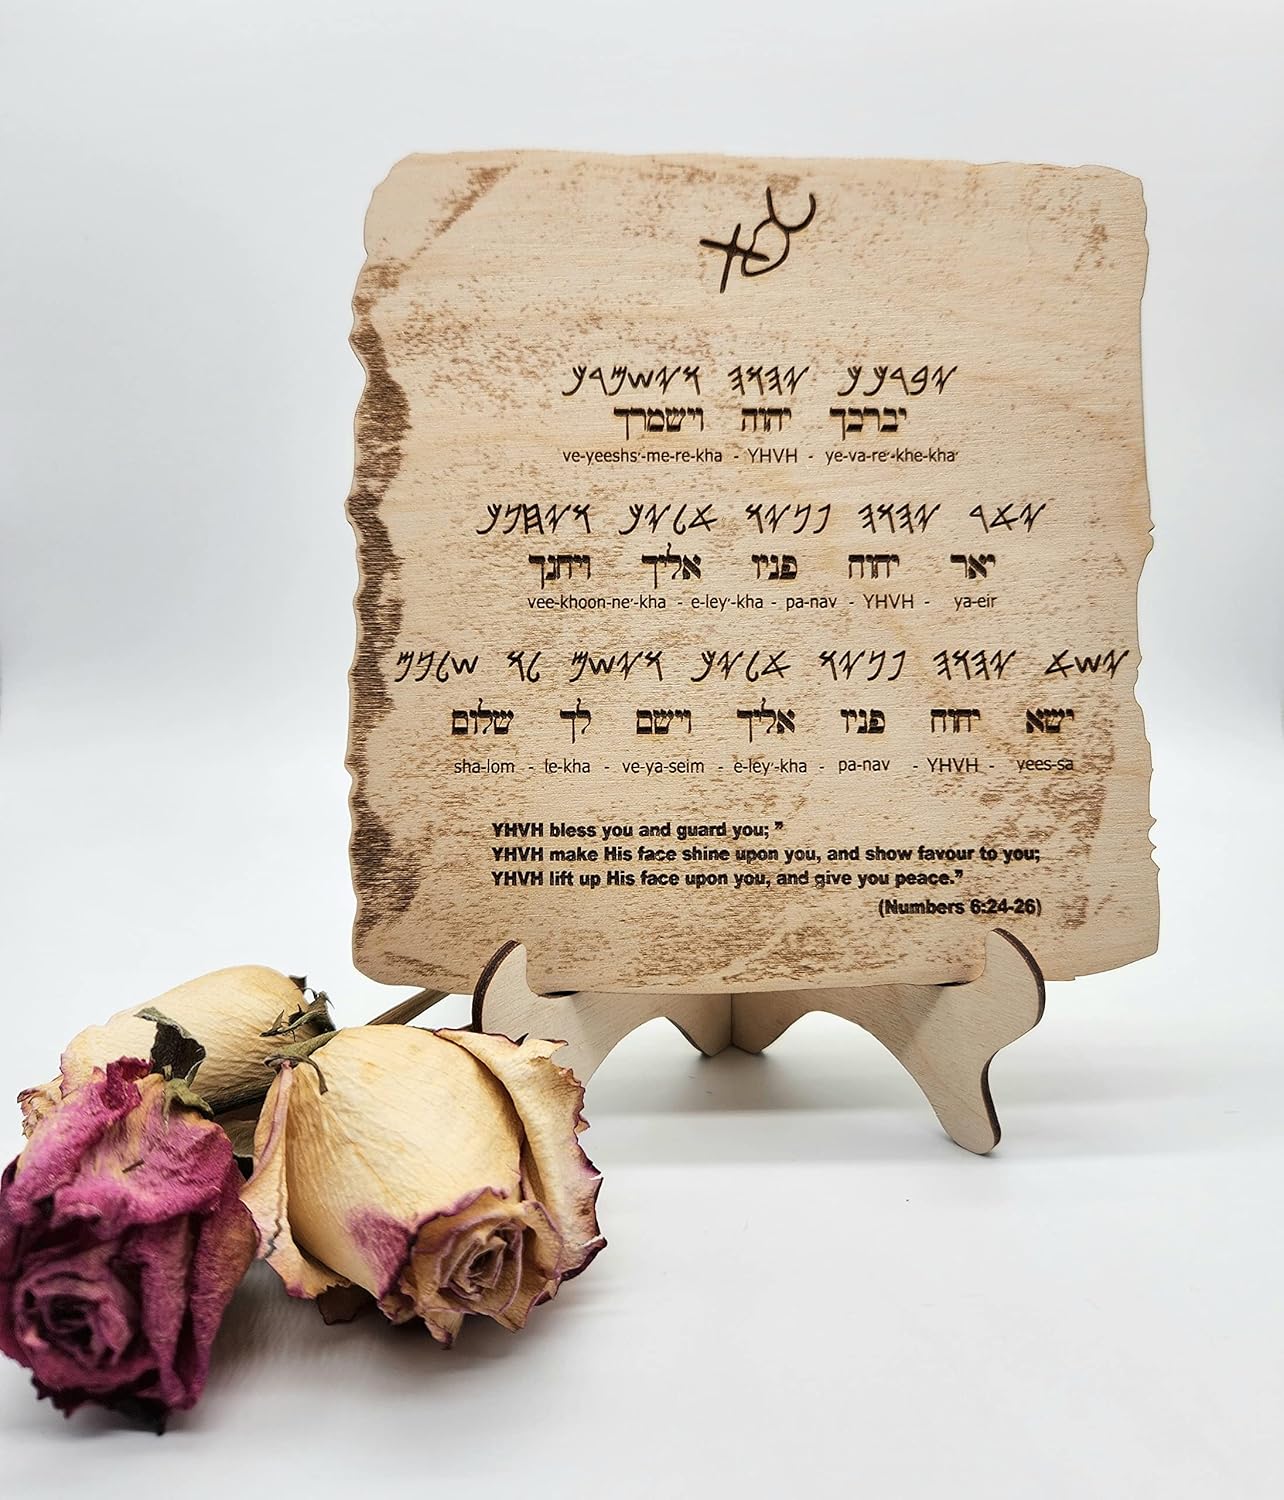 𐤉𐤁𐤓𐤊𐤊 𐤉𐤄𐤅𐤄 𐤅𐤉𐤔𐤌𐤓𐤊
יברכך יהוה וישמרך
ve-yeeshs'-me-re-kha - YHVH - ye-va-re'-khe-kha'
𐤉𐤀𐤓 𐤉𐤄𐤅𐤄 𐤐𐤍𐤉𐤅 𐤀𐤋𐤉𐤊 𐤅𐤉𐤇𐤍𐤊
יאר יהוה פניו אליך ויחנך
vee-khoon-ne'-kha - e-ley'-kha - pa-nav - YHVH - ya-eir
𐤉𐤔𐤀 𐤉𐤄𐤅𐤄 𐤐𐤍𐤉𐤅 𐤀𐤋𐤉𐤊 𐤅𐤉𐤔𐤌 𐤋𐤊
ישא יהוה פניו אליך וישם לך שלום
sha-lom - le-kha - ve-ya-seim - e-ley'-kha - pa-nav - YHVH - yees-sa
YHVH bless you and guard you; ”
YHVH make His face shine upon you, and show favour to you;
YHVH lift up His face upon you, and give you peace.”
(Numbers 6:24-26)